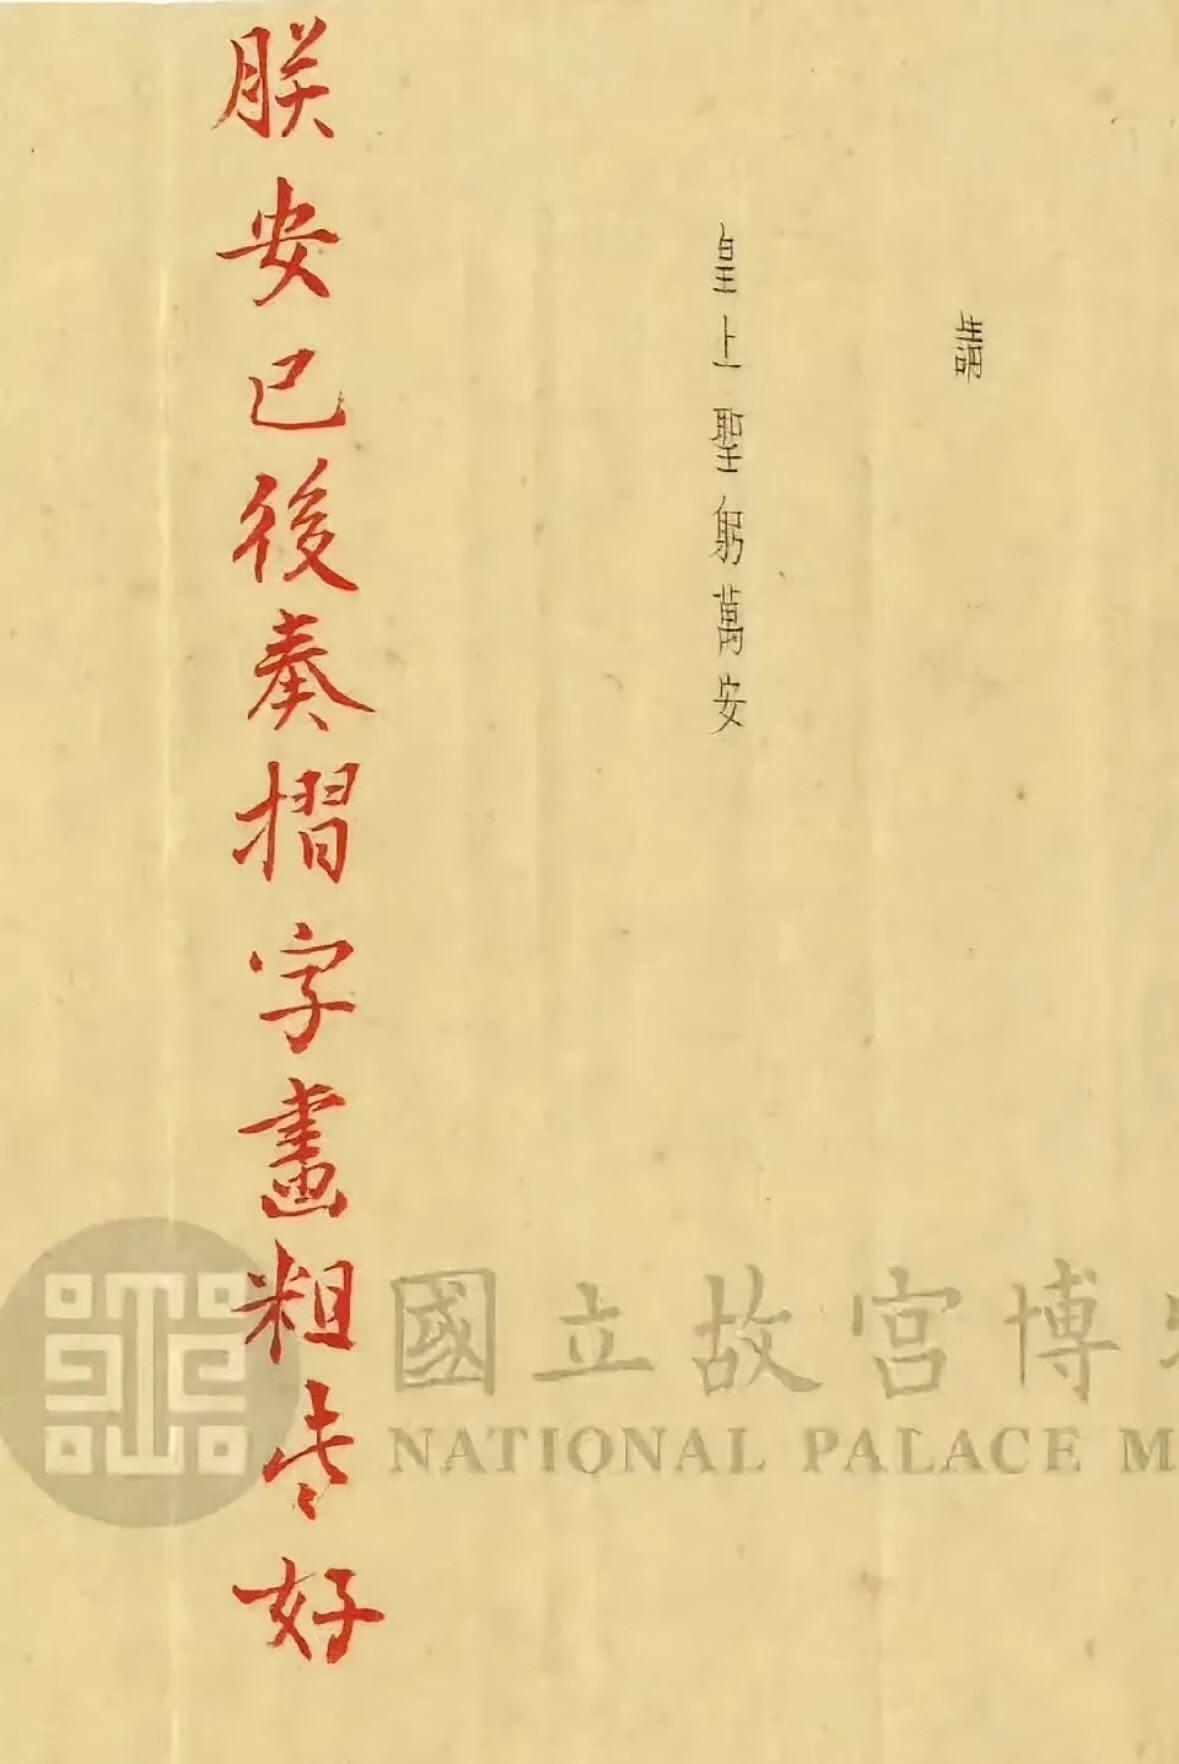 請
皇上聖躬萬安
朕安已後奏摺字畫粗些好
國立故宮博
NATIONAL PALACE M